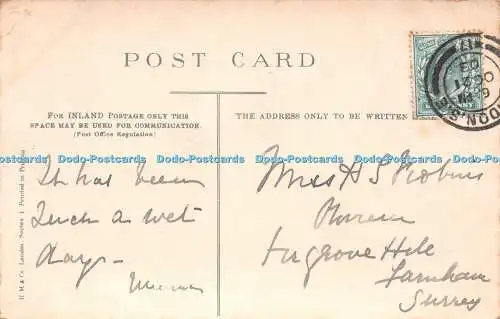 POST CARD
FOR INLAND POSTAGE ONLY THIS
SPACE MAY BE USED FOR COMMUNICATION.
(Post Office Regulation)
THE ADDRESS ONLY TO BE WRITTEN
Dodo-Postcards Dodo-Postcards Dodo-Postcards Dodo-Postcards Dodo-Postcards Dodo-Postcards
It has been
Such a wet
day-
Mrs H S
Firgrove Hill
Farnham
Surrey
H M & Co. London. Series 1 Printed in
LONDON, S.E.